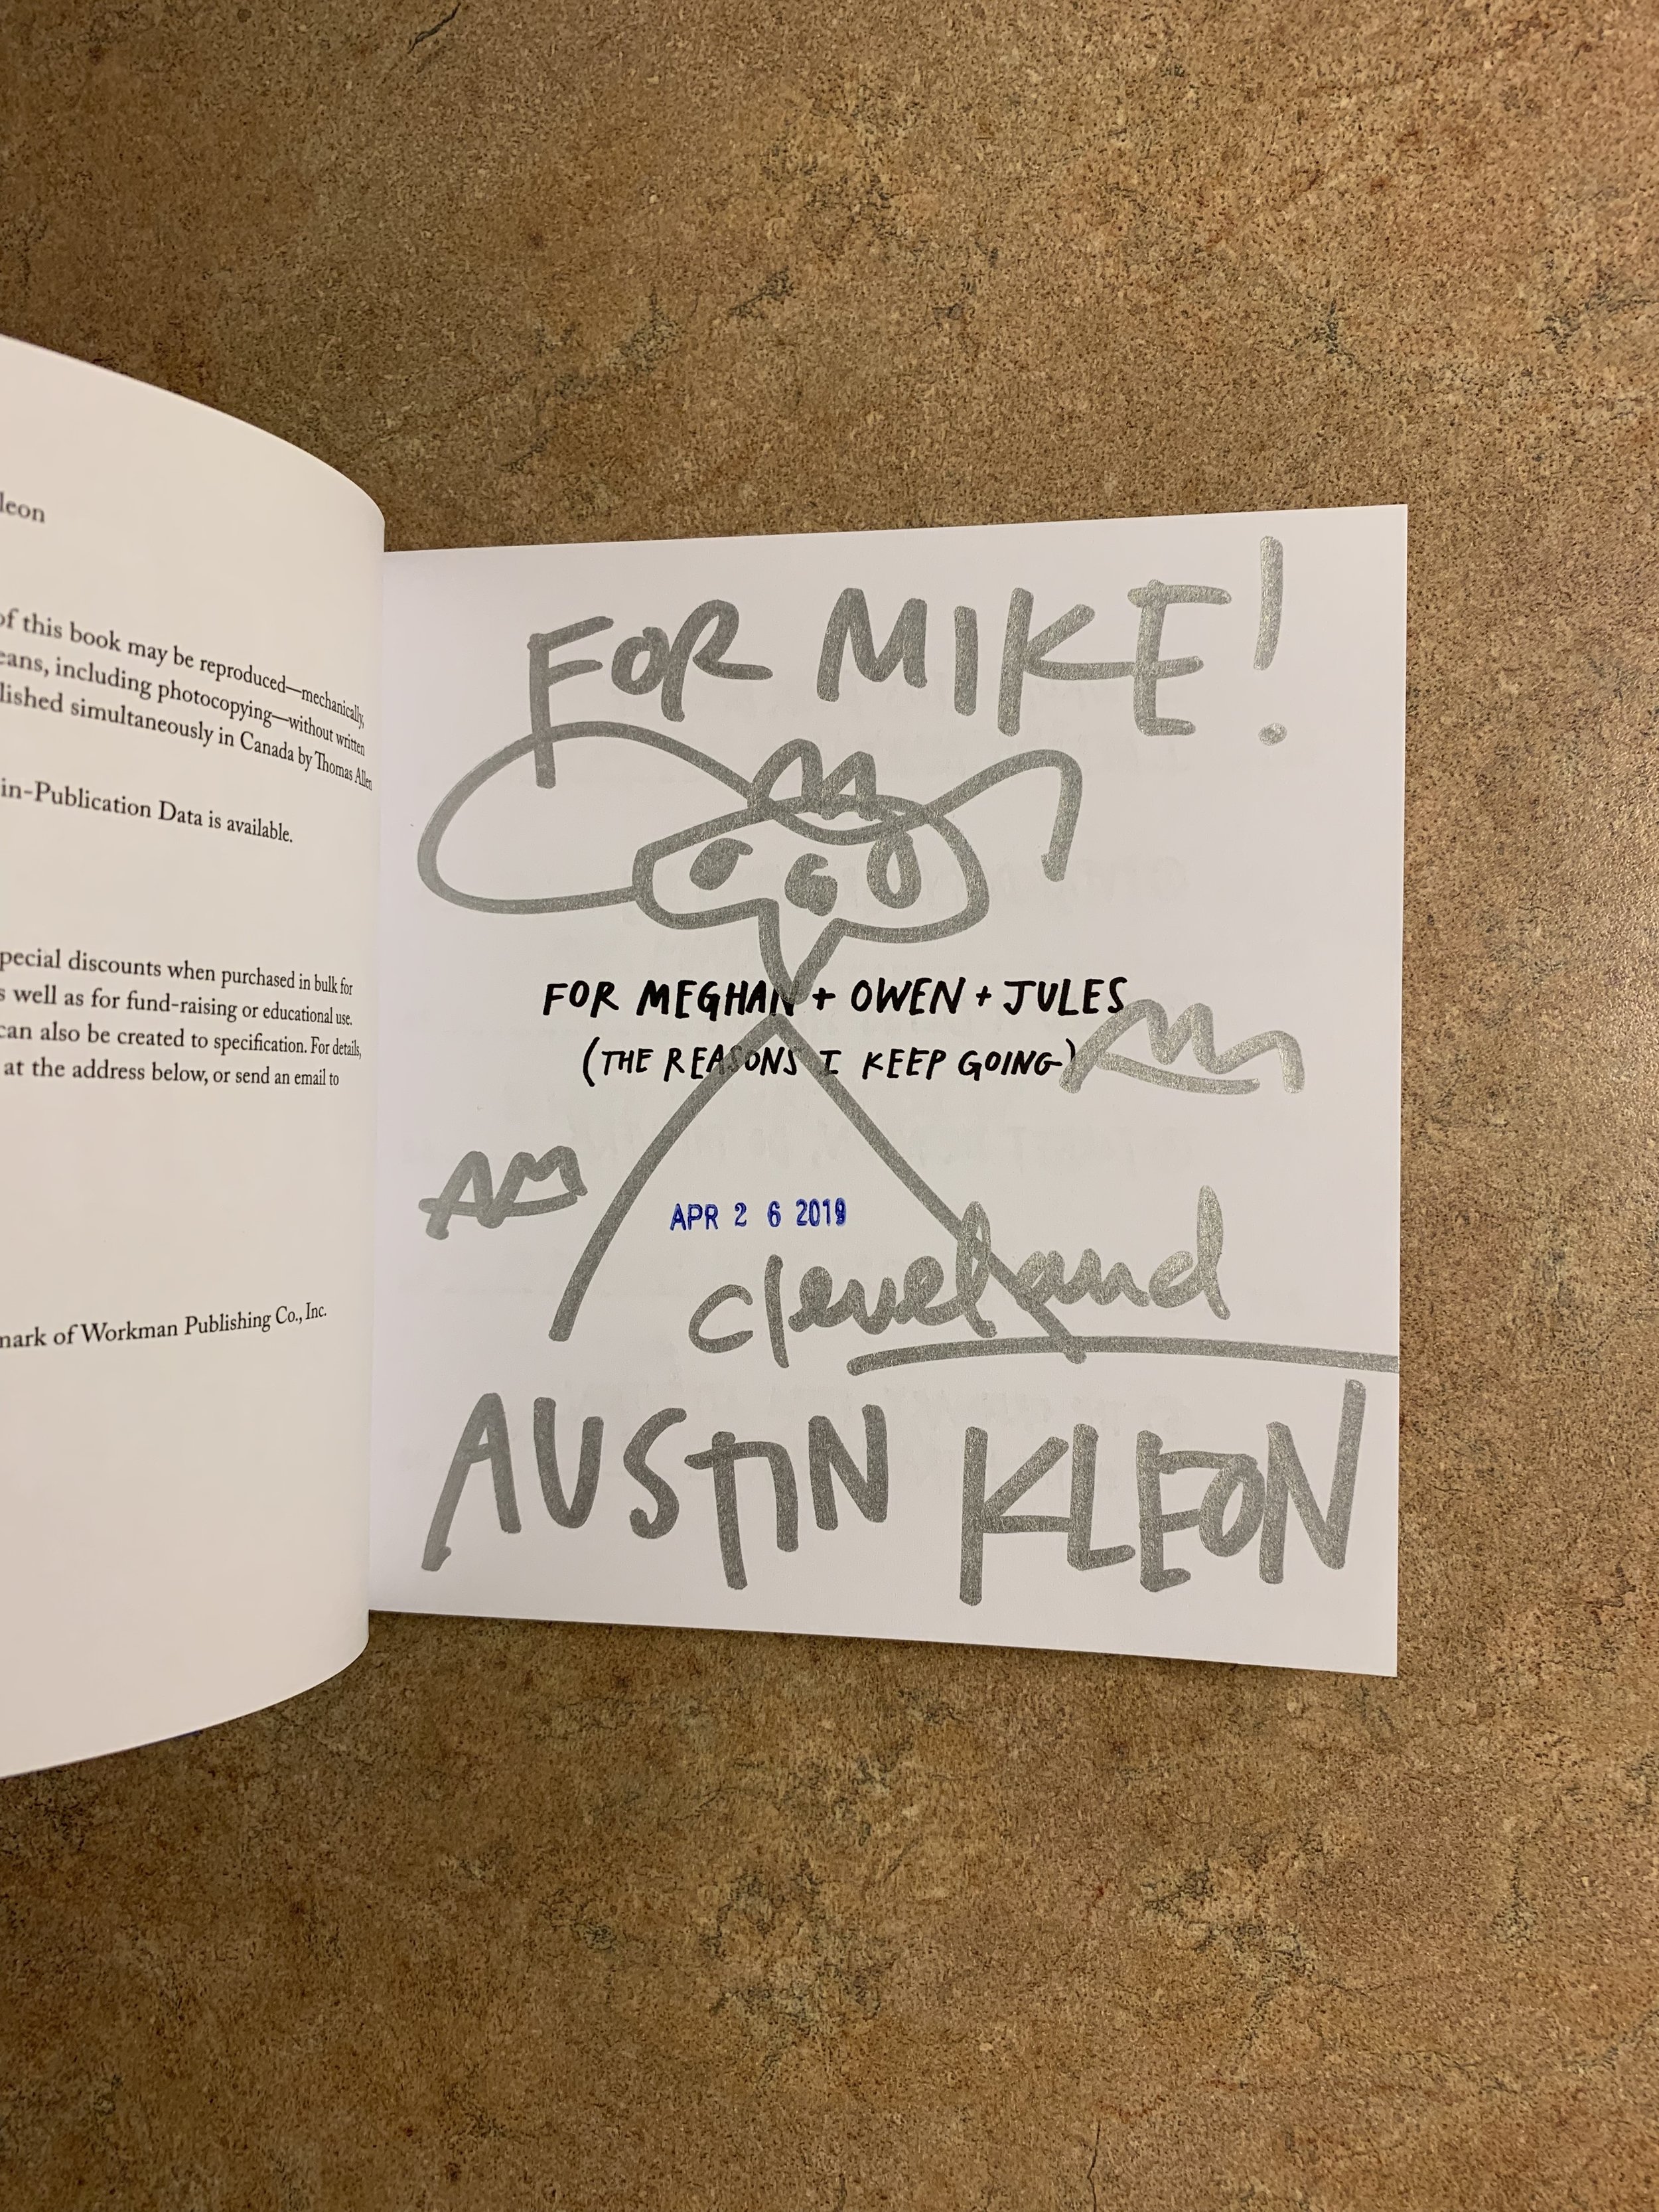 leon
of this book may be reproduced—mechanically,
eans, including photocopying—without written
lished simultaneously in Canada by Thomas Allen
in-Publication Data is available.
pecial discounts when purchased in bulk for
s well as for fund-raising or educational use.
can also be created to specification. For details,
at the address below, or send an email to
mark of Workman Publishing Co., Inc.
FOR MIKE!
FOR MEGHAN + OWEN + JULES
(THE REASONS I KEEP GOING)
APR 26 2019
cleveland
AUSTIN KLEON